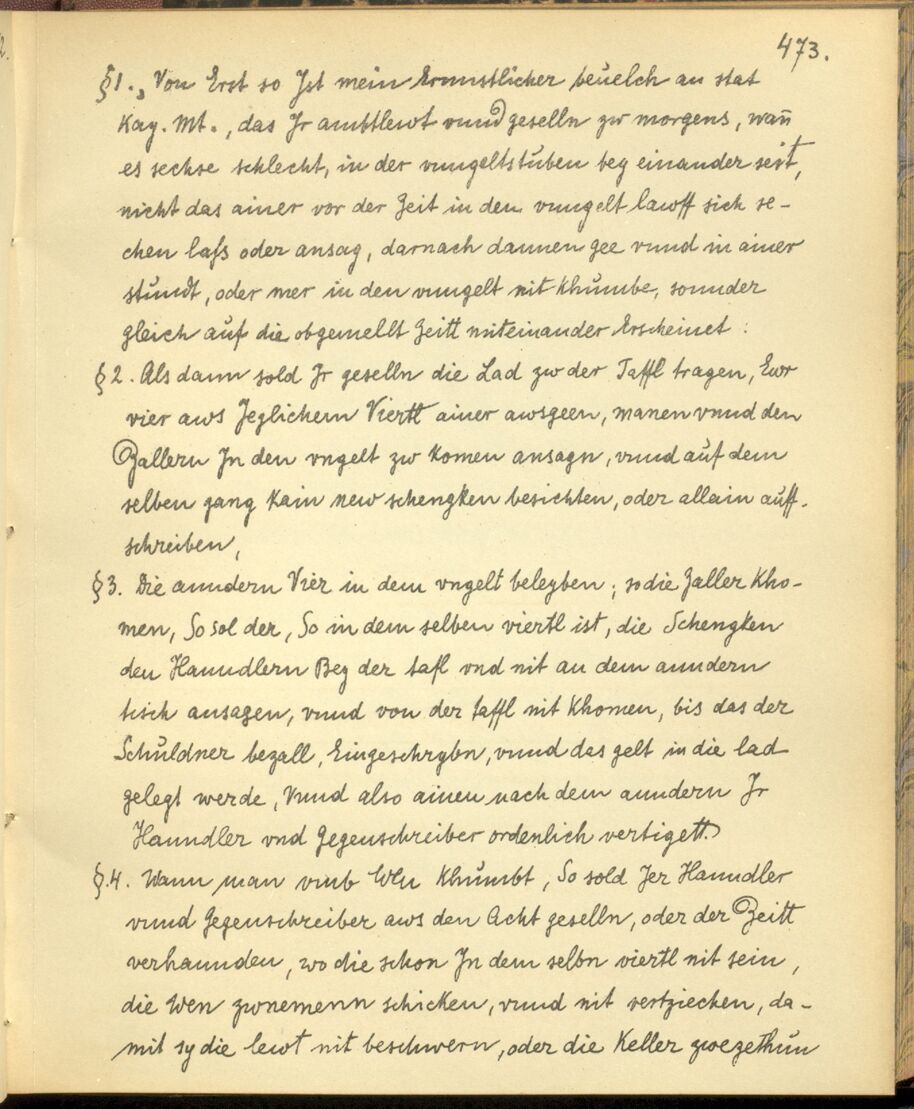 473.
§1. „Von Erst so Jst mein Ernnstlicher beuelch an stat
Kay. Mt., das Jr ambtlewt vnnd geselln zw morgens, wan̄
es sechse schlecht, in der vnngeltstuben bey einander seit,
nicht das ainer vor der Zeit in den vnngelt lawff sich se-
chen lass oder ansag, darnach dannen gee vnnd in ainer
stundt, oder mer in den vnngelt nit khumbe, sonnder
gleich auf die obgemellt Zeitt miteinander Erscheinet:
§2. Als dann sold Jr geselln die Lad zw der Taffl tragen, Ewr
vier aws Jeglichem Viertl ainer awsgeen, manen vnnd den
Zallern Jn den vngelt zw komen ansagn, vnnd auf dem
selben gang kain new schengken besichten, oder allain auff-
schreiben,
§3. Die anndern Vier in dem vngelt beleyben; so die Zaller kho-
men, So sol der, So in dem selben viertl ist, die Schengken
den Hanndlern Bey der tafl vnd nit an dem anndern
tisch ansagen, vnnd von der taffl nit khomen, bis das der
Schuldner bezall, Eingeschrybn, vnnd das gelt in die lad
gelegt werde, Vnnd also ainen nach dem anndern Jr
Hanndler vnd Gegenschreiber ordenlich vertigett.
§.4. Wann man vmb Wen khumbt, So sold Jer Hanndler
vnnd Gegenschreiber aws den Acht geselln, oder der Zeitt
verhannden, wo die schon Jn dem selbn viertl nit sein,
die Wen zwnemenn schicken, vnnd nit vertziechen, da-
mit sy die lewt nit beschwern, oder die Keller zwezethun